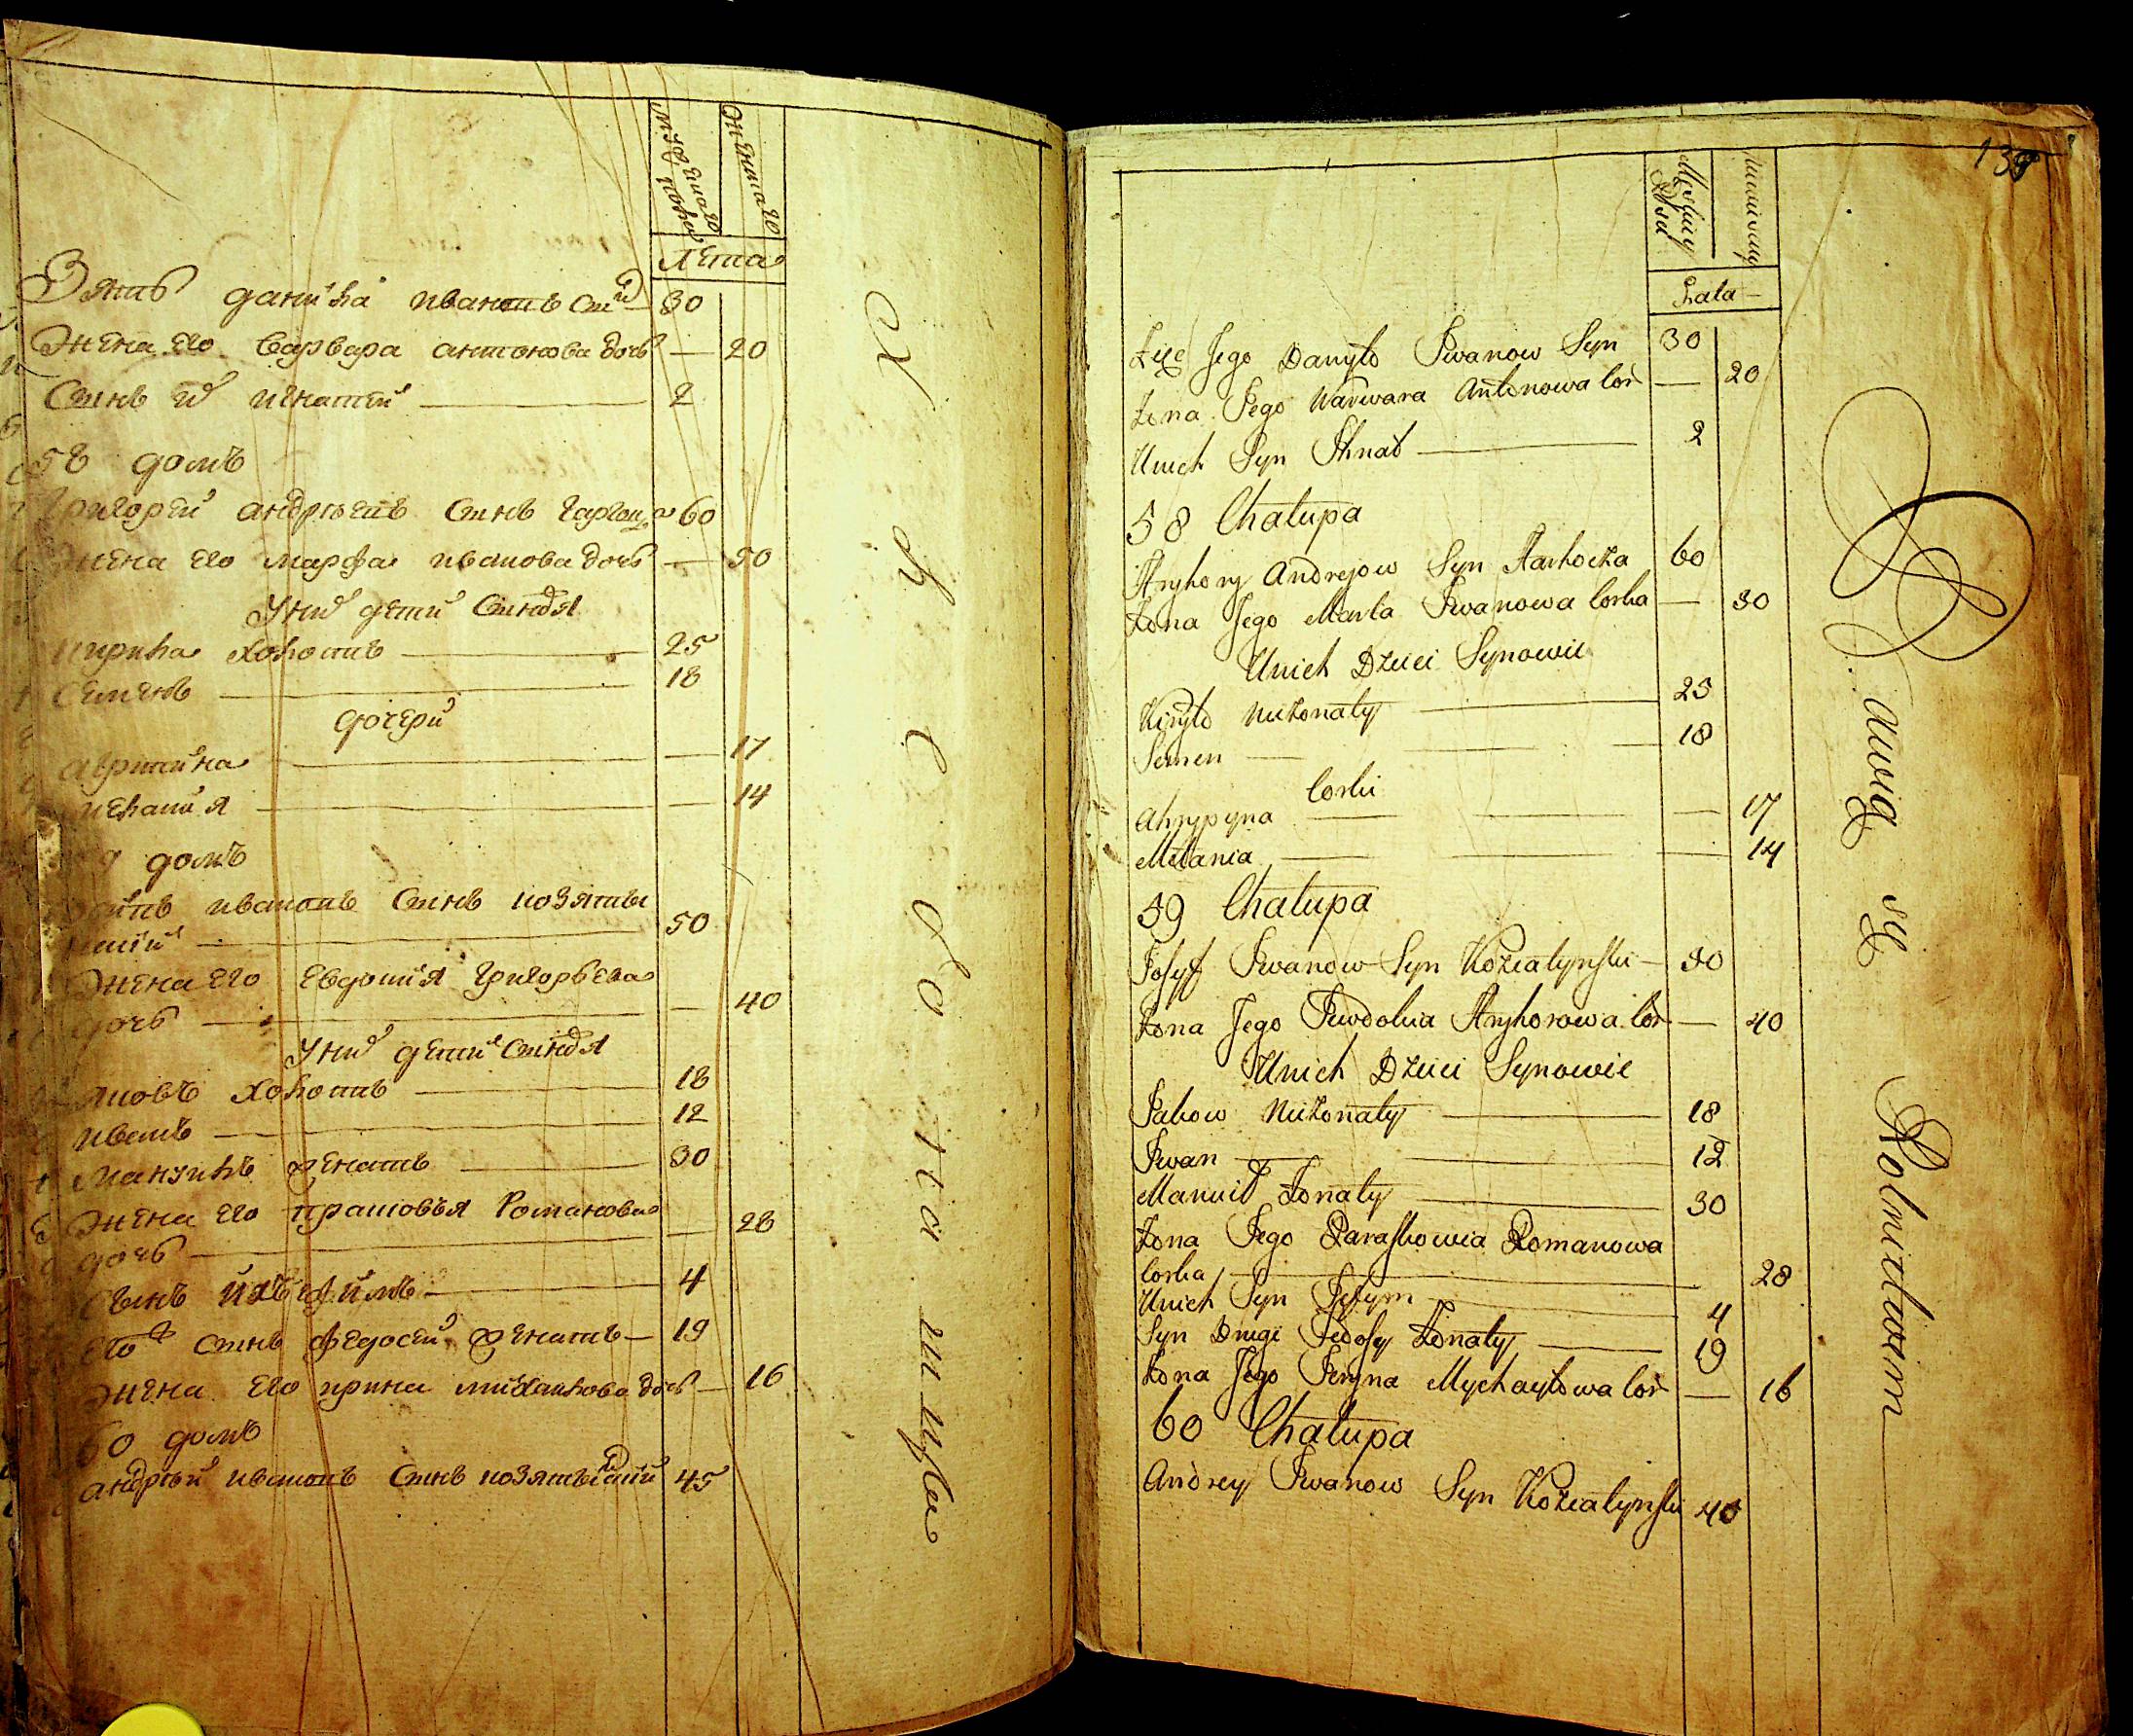 мужескаго пола
женскаго
лета
Зять данила ивановъ синъ 30
Жена его варвара антонова дочь — 20
Синъ их игнатий — 2
58 домъ
Григорей андреевъ синъ 60
Жена его марфа иванова дочь — 50
У них дети синовя
кирила холостъ — 25
Семенъ — 18
дочери
агрипина — 17
мелания — 14
домъ
ивановъ синъ козятин
ский — 50
Жена его евдокия григорьева
дочь — 40
У них дети синовя
яковъ холостъ — 18
иванъ — 12
мануилъ женатъ — 30
Жена его прасковья романова
дочь — 28
сынъ ихъ ефимъ — 4
его синъ федосей женатъ — 19
Жена его ирина михайлова дочь — 16
60 домъ
андрей ивановъ синъ козятинский 45
139
Męskiey Płci
Lata
Zięć Jego Danyło Iwanow Syn 30
Zona Jego Warwara Antonowa Cor — 20
Unich Syn Ihnat — 2
58 Chałupa
Hryhory Andrejow Syn 60
Zona Jego Marta Iwanowa Corka — 50
Unich Dzieci Synowie
Kiryło Nieżonaty — 25
Semen — 18
Corki
Ahrypyna — 17
Mełania — 14
59 Chałupa
Josyf Iwanow Syn Koziatynski — 50
Zona Jego Euwdokia Hryhorowa Cor — 40
Unich Dzieci Synowie
Jakow Nieżonaty — 18
Iwan — 12
Manuił Żonaty — 30
Zona Jego Paraskowia Romanowa
Corka — 28
Unich Syn Jefym — 4
Syn Drugi Fedosy Żonaty — 19
Zona Jego Iryna Mychayłowa Cor — 16
60 Chałupa
Andrey Iwanow Syn Koziatynski 45